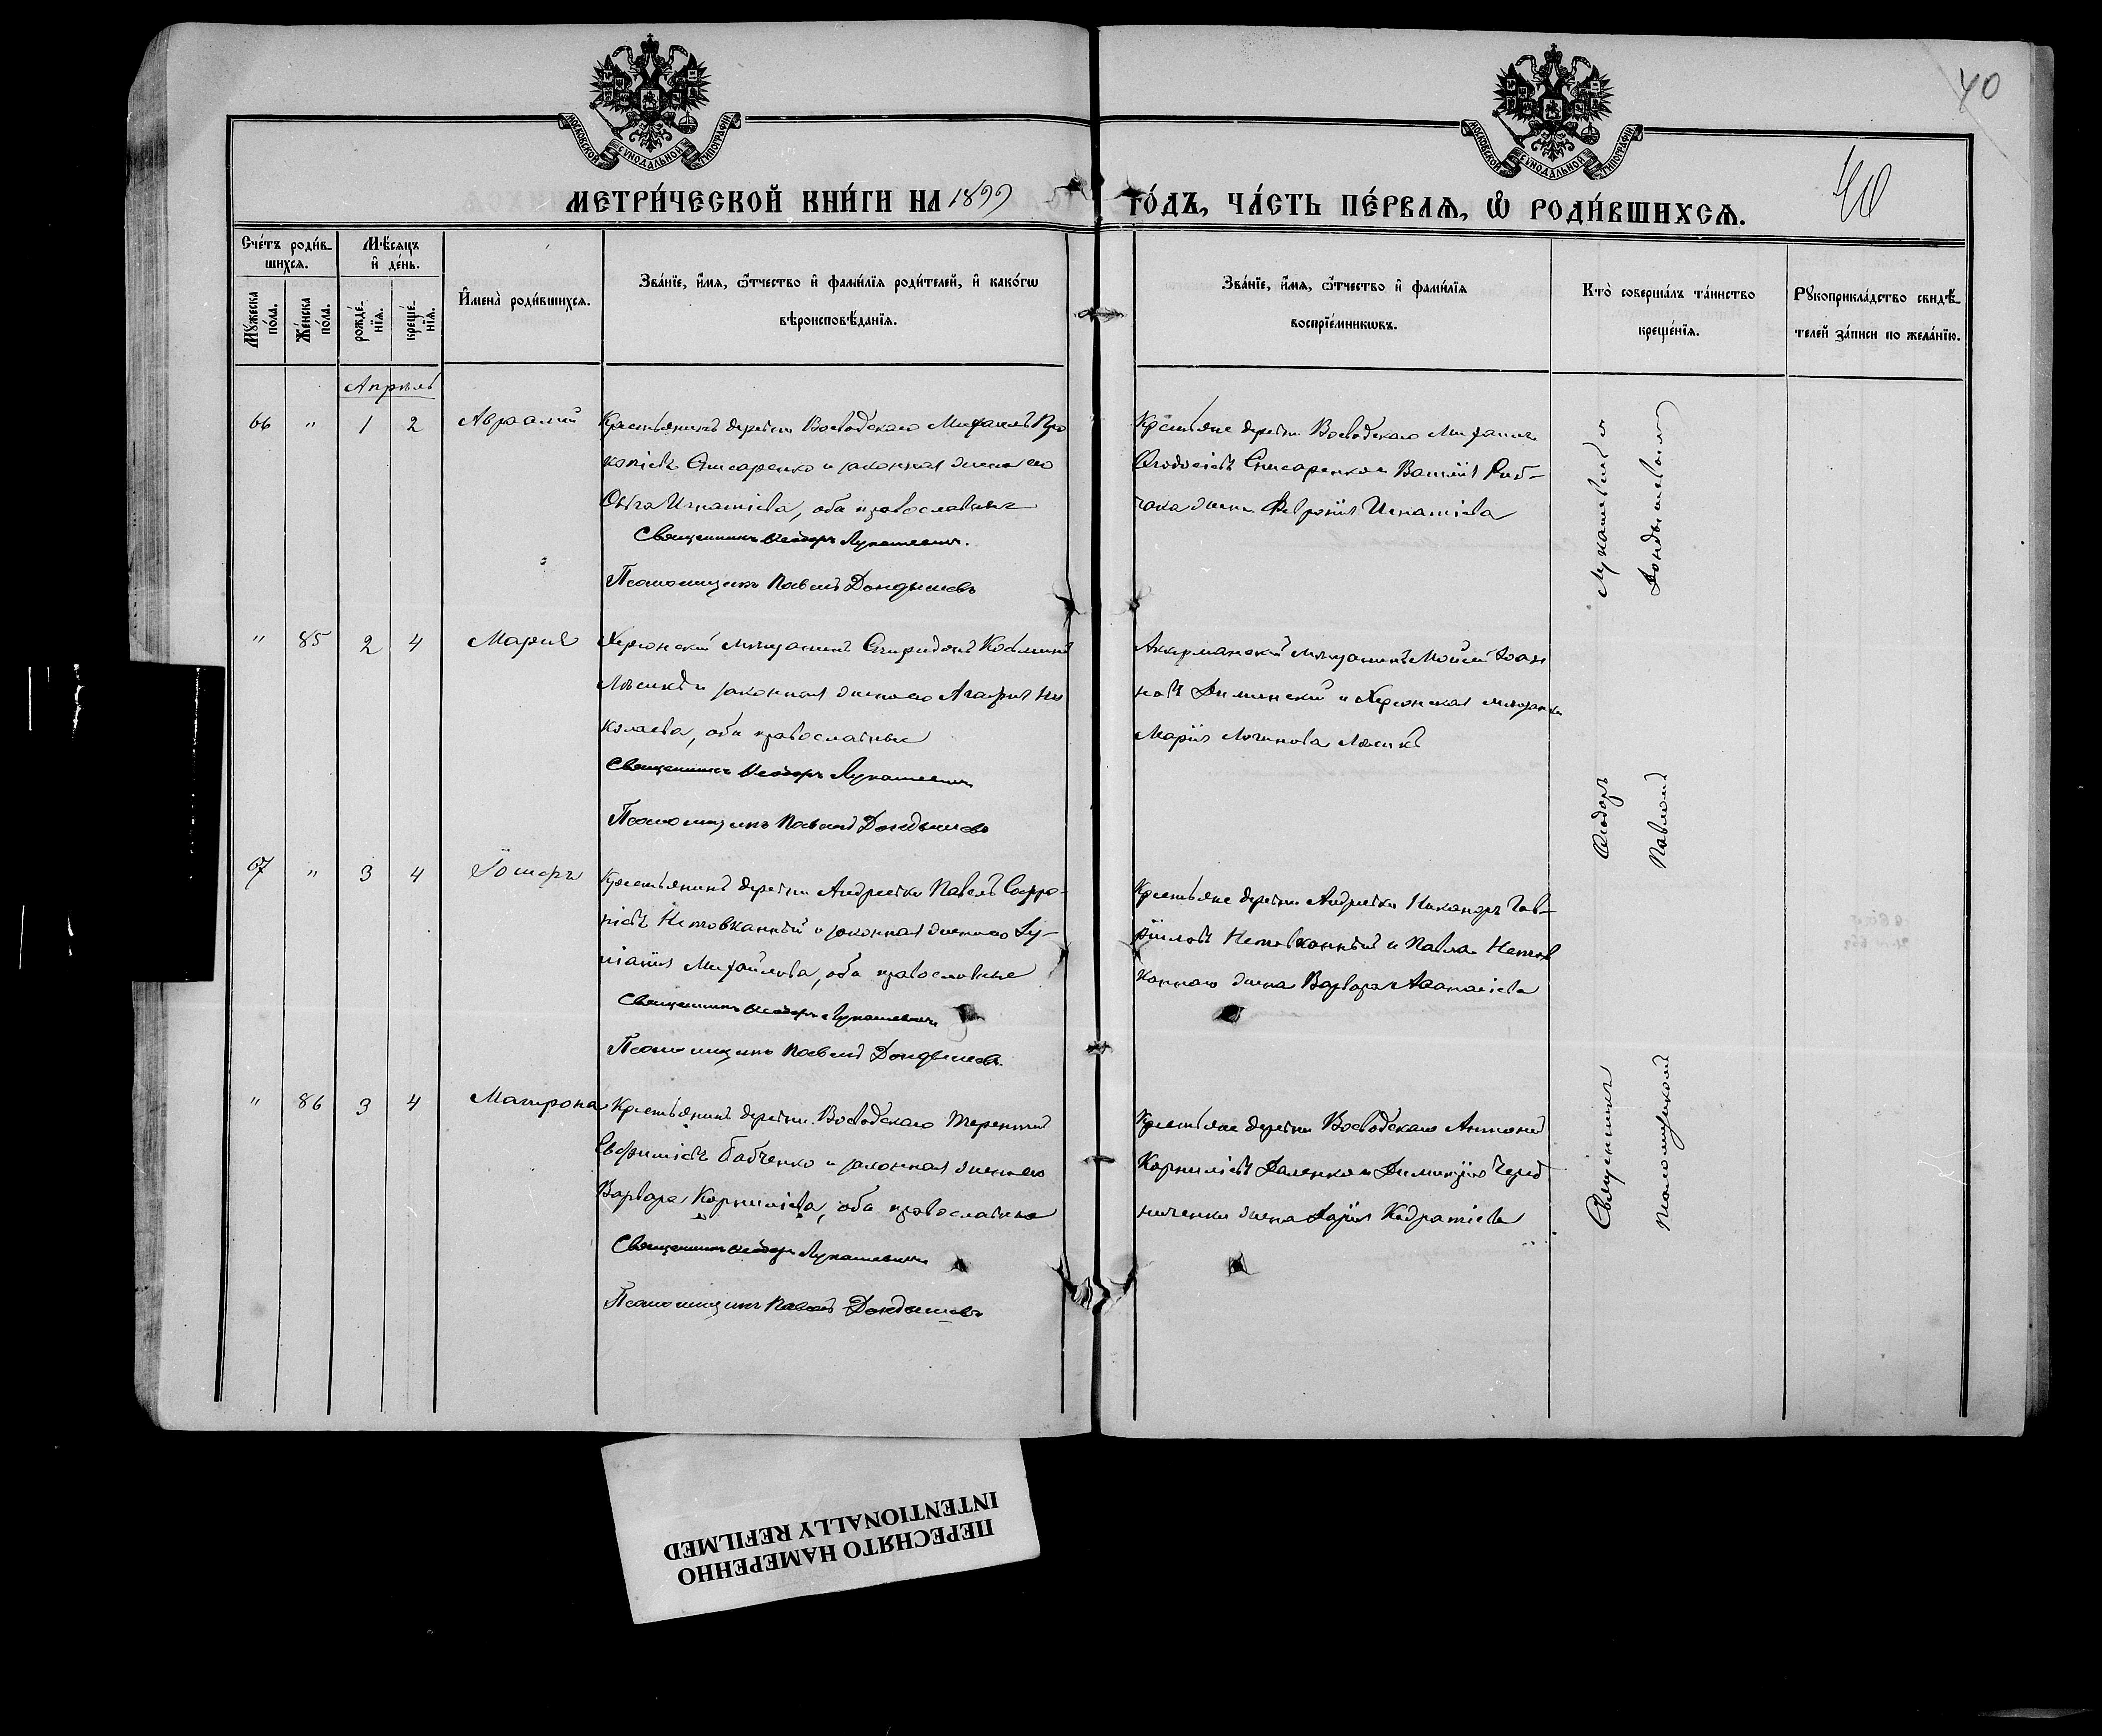 40
МОСКОВСКОЙ СУНОДАЛЬНОЙ ТИПОГРАФІИ
МОСКОВСКОЙ СУНОДАЛЬНОЙ ТИПОГРАФІИ
МЕТРИ́ЧЕСКОЙ КНИ́ГИ НА 1899
ГО́ДЪ, ЧА́СТЬ ПЕ́РВАѦ, Ѡ҆ РОДИ́ВШИХСѦ.
40
Сче́тъ роди́в-
шихсѧ.
Мꙋ́жеска по́ла.
Же́нска по́ла.
Мѣ́сяцъ
и҆ де́нь.
рожде́-нїѧ.
креще́-нїѧ.
И҆мена̀ роди́вшихсѧ.
Зва́нїе, и҆́мѧ, ѻ҆́тчество и҆ фами́лїѧ роди́телей, и҆ како́гѡ
вѣроисповѣ́данїѧ.
Зва́нїе, и҆́мѧ, ѻ҆́тчество и҆ фами́лїѧ
воспрїе́мникѡвъ.
Кто̀ соверша́лъ та́инство
креще́нїѧ.
Рꙋкоприкла́дство свидѣ́-
телей за́писи по жела́нїю.
Апрѣль
66 " 1 2 Авраамій
Крестьянинъ деревни Воеводскаго Михаилъ Про
копіевъ Слисаренко и законная жена его
Ольга Игнатіева, оба православные
Священникъ Ѳеодоръ Лукашевичъ.
Псаломщикъ Павелъ Дондышевъ
Крестьяне деревни Воеводскаго Михаилъ
Ѳеодосіевъ Слисаренко и Василія Риб-
чака жена Февронія Игнатіева
" 85 2 4 Марія
Херсонскій мѣщанинъ Спиридонъ Косьминъ
и законная жена его Агафія Ни
колаева, оба православные
Священникъ Ѳеодоръ Лукашевичъ
Псаломщикъ Павелъ Дондышевъ
Аккерманскій мѣщанинъ Мойсей Іоан
новъ Диминскій и Херсонская мѣщанка
Марія Логинова
67 " 3 4
Крестьянинъ деревни Андреевки Павелъ Софро-
ніевъ Нетовканный и законная жена его Іу-
ліанія Михайлова, оба православные
Священникъ Ѳеодоръ Лукашевичъ
Псаломщикъ Павелъ Дондышевъ.
Крестьяне деревни Андреевки Никаноръ Гав-
рііловъ Нетовканный и Павла Нетов
каннаго жена Варвара Аѳанасіева
" 86 3 4 Матрона
Крестьянинъ деревни Воеводскаго Терентій
Евфиміевъ Бабченко и законная жена его
Варвара Корниліева, оба православные
Священникъ Ѳеодоръ Лукашевичъ
Псаломщикъ Павелъ Дондышевъ
Крестьяне деревни Воеводскаго Антоній
Корниліевъ Даленко и Димитрія Черед
ниченки жена Дарія Кодратіева
Священникъ Ѳеодоръ Лукашевичъ и
Псаломщикомъ Павломъ Дондышевымъ
ПЕРЕСНЯТО НАМЕРЕННО
INTENTIONALLY REFILMED